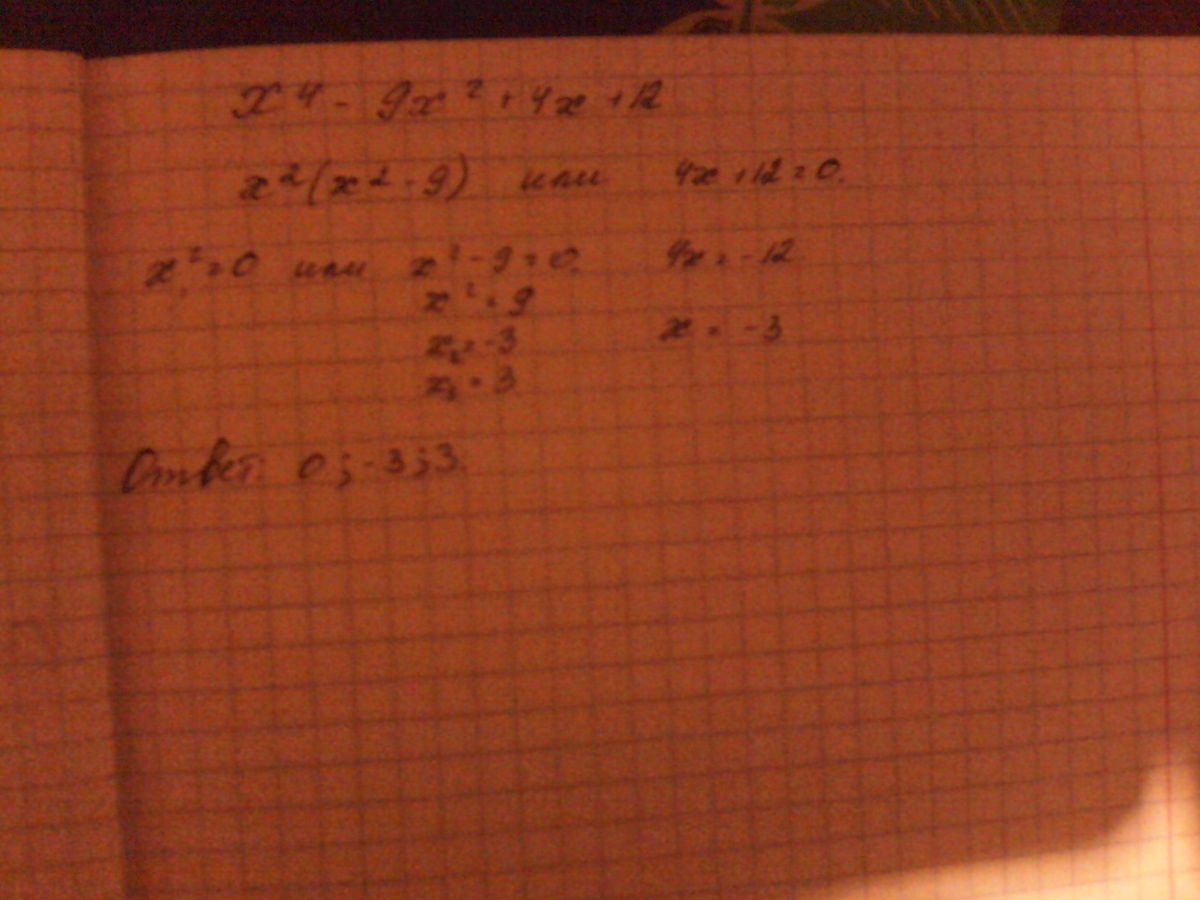 x⁴ - 9x² + 4x + 12
x²(x² - 9) или 4x + 12 = 0.
x² = 0 или x² - 9 = 0. 4x = -12
x² = 9
x₂ = -3 x = -3
x₃ = 3
Ответ: 0; -3; 3.